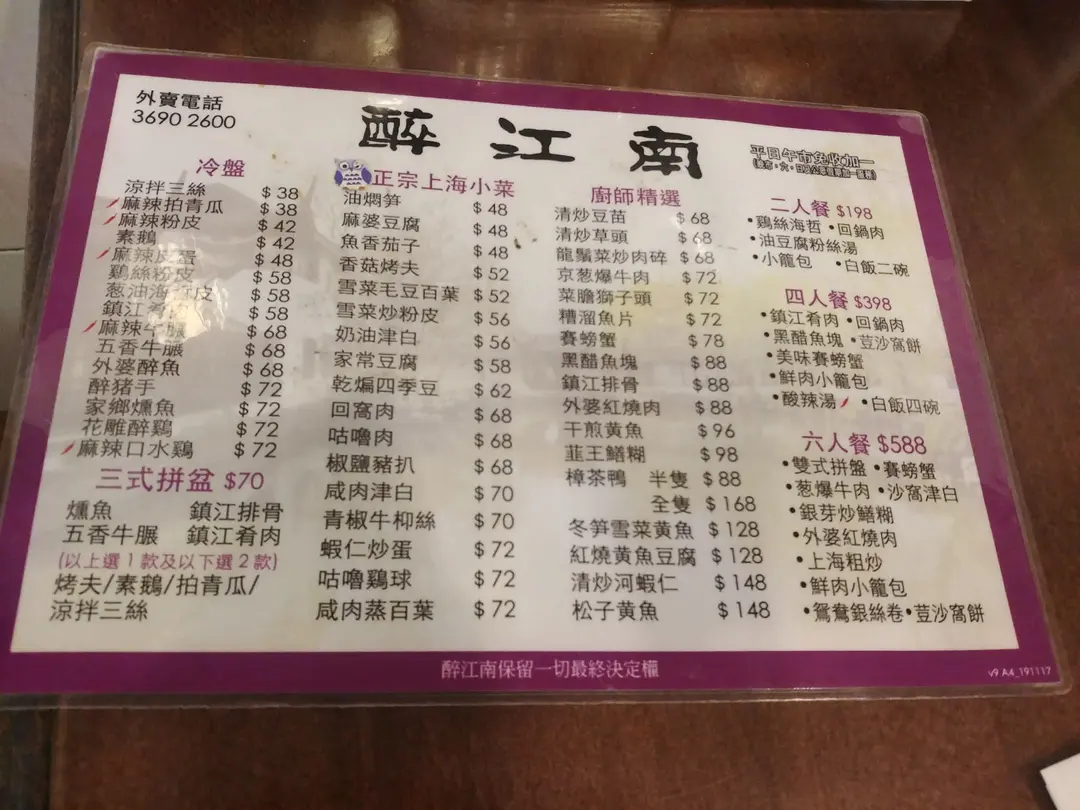 外賣電話
3690 2600
醉江南
平日午市免收加一
冷盤
涼拌三絲 $38
麻辣拍青瓜 $38
麻辣粉皮 $42
素鵝 $42
麻辣皮蛋 $48
鷄絲粉皮 $58
葱油海皮 $58
鎮江肴 $58
麻辣牛𦟌 $68
五香牛𦟌 $68
外婆醉魚 $68
醉猪手 $72
家鄉燻魚 $72
花雕醉鷄 $72
麻辣口水鷄 $72
三式拼盆 $70
燻魚 鎮江排骨
五香牛𦟌 鎮江肴肉
(以上選1款及以下選2款)
烤夫/素鵝/拍青瓜/
涼拌三絲
正宗上海小菜
油燜笋 $48
麻婆豆腐 $48
魚香茄子 $48
香菇烤夫 $52
雪菜毛豆百葉 $52
雪菜炒粉皮 $56
奶油津白 $56
家常豆腐 $58
乾煸四季豆 $62
回窩肉 $68
咕嚕肉 $68
椒鹽豬扒 $68
咸肉津白 $70
青椒牛柳絲 $70
蝦仁炒蛋 $72
咕嚕鷄球 $72
咸肉蒸百葉 $72
廚師精選
清炒豆苗 $68
清炒草頭 $68
龍鬚菜炒肉碎 $68
京葱爆牛肉 $72
菜膽獅子頭 $72
糟溜魚片 $72
賽螃蟹 $78
黑醋魚塊 $88
鎮江排骨 $88
外婆紅燒肉 $88
干煎黄魚 $96
韮王鱔糊 $98
樟茶鴨 半隻 $88
全隻 $168
冬笋雪菜黄魚 $128
紅燒黄魚豆腐 $128
清炒河蝦仁 $148
松子黄魚 $148
二人餐 $198
•鷄絲海哲 •回鍋肉
•油豆腐粉絲湯
•小籠包 •白飯二碗
四人餐 $398
•鎮江肴肉 •回鍋肉
•黑醋魚塊 •荳沙窩餅
•美味賽螃蟹
•鮮肉小籠包
•酸辣湯 •白飯四碗
六人餐 $588
•雙式拼盤 •賽螃蟹
•葱爆牛肉 •沙窩津白
•銀芽炒鱔糊
•外婆紅燒肉
•上海粗炒
•鮮肉小籠包
•鴛鴦銀絲卷 •荳沙窩餅
醉江南保留一切最終決定權
v9 A4_191117